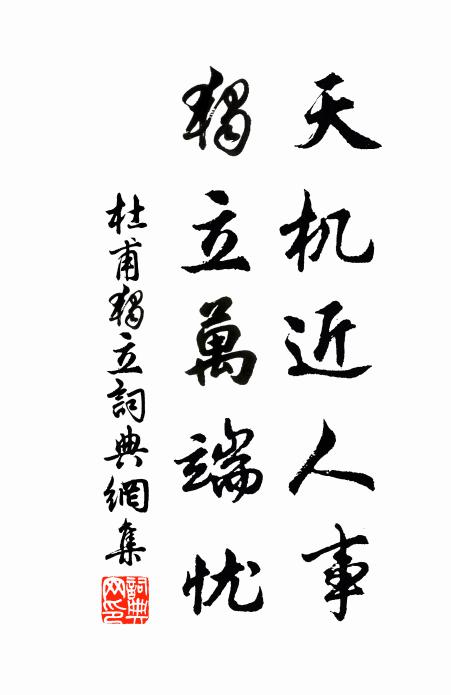 天机近人事
獨立萬端忧
杜甫獨立詞典網集
詞典網印